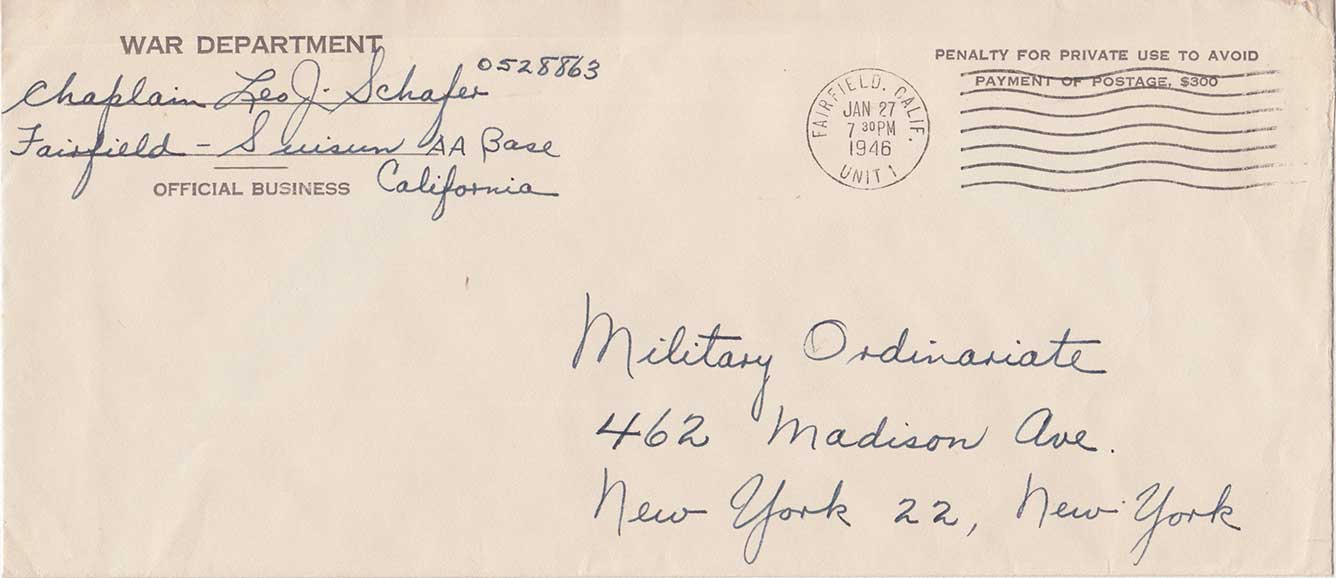 WAR DEPARTMENT
Chaplain Leo J. Schafer 0528863
Fairfield - Suisun AA Base
California
OFFICIAL BUSINESS
PENALTY FOR PRIVATE USE TO AVOID
PAYMENT OF POSTAGE, $300
FAIRFIELD, CALIF.
JAN 27
7 30 PM
1946
UNIT 1
Military Ordinariate
462 Madison Ave.
New York 22, New York